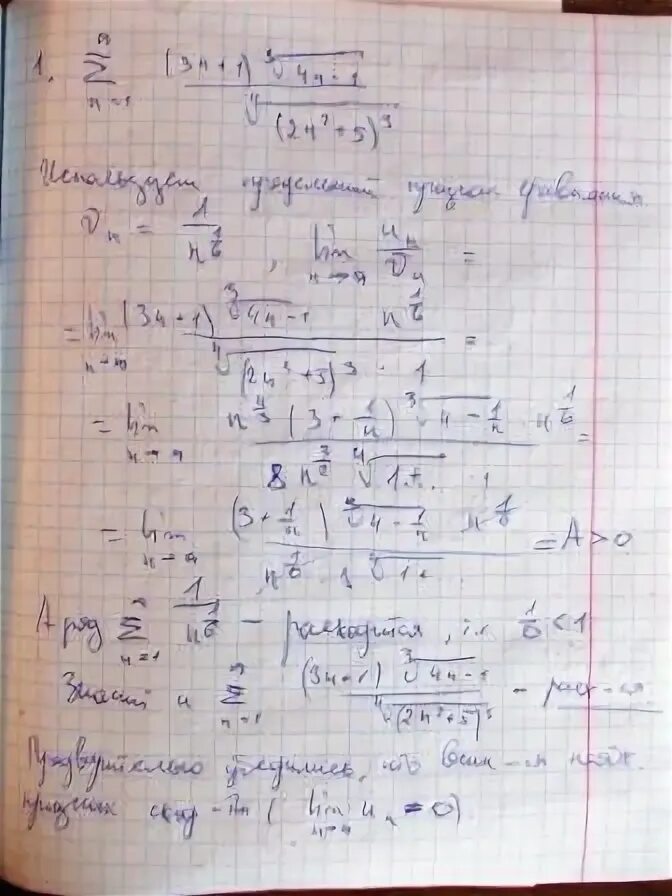 1. ∑_{n=1}^{∞} (3n+1) ∛(4n-1) / ∜((2n²+5)³)
Используем предельный признак сравнения
v_n = 1/n^{1/6}, lim_{n→∞} u_n/v_n =
= lim_{n→∞} (3n+1) ∛(4n-1) n^{1/6} / ∜((2n²+5)³) · 1 =
= lim_{n→∞} n^{4/3} (3+1/n) ∛(4-1/n) · n^{1/6} / 8 n^{3/2} ∜(1+.. · 1 =
= lim_{n→∞} (3+1/n) ∛(4-1/n) n^{1/6} / n^{1/6} ∜(1+ = A > 0
А ряд ∑_{n=1}^{∞} 1/n^{1/6} - расходится, т.к 1/6 < 1
Значит и ∑_{n=1}^{∞} (3n+1) ∛(4n-1) / ∜((2n²+5)³) - расх-ся
Предварительно убедились, что
признак сход-ти ( lim_{n→∞} u_n = 0)